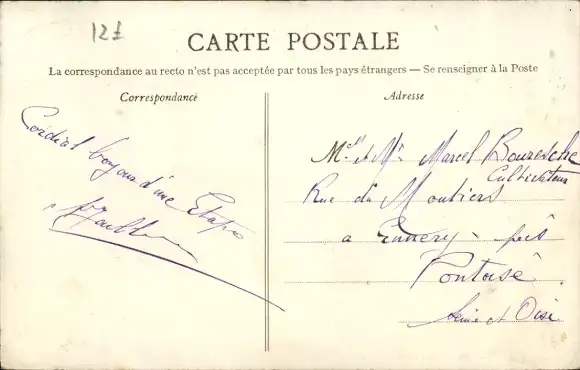 12f
CARTE POSTALE
La correspondance au recto n'est pas acceptée par tous les pays étrangers — Se renseigner à la Poste
Correspondance
Adresse
Cordial bonjour d'une Etape
Mr et Me Marcel Bouresche
Cultivateur
Rue du Moutiers
a Ennery - près
Pontoise
Seine et Oise